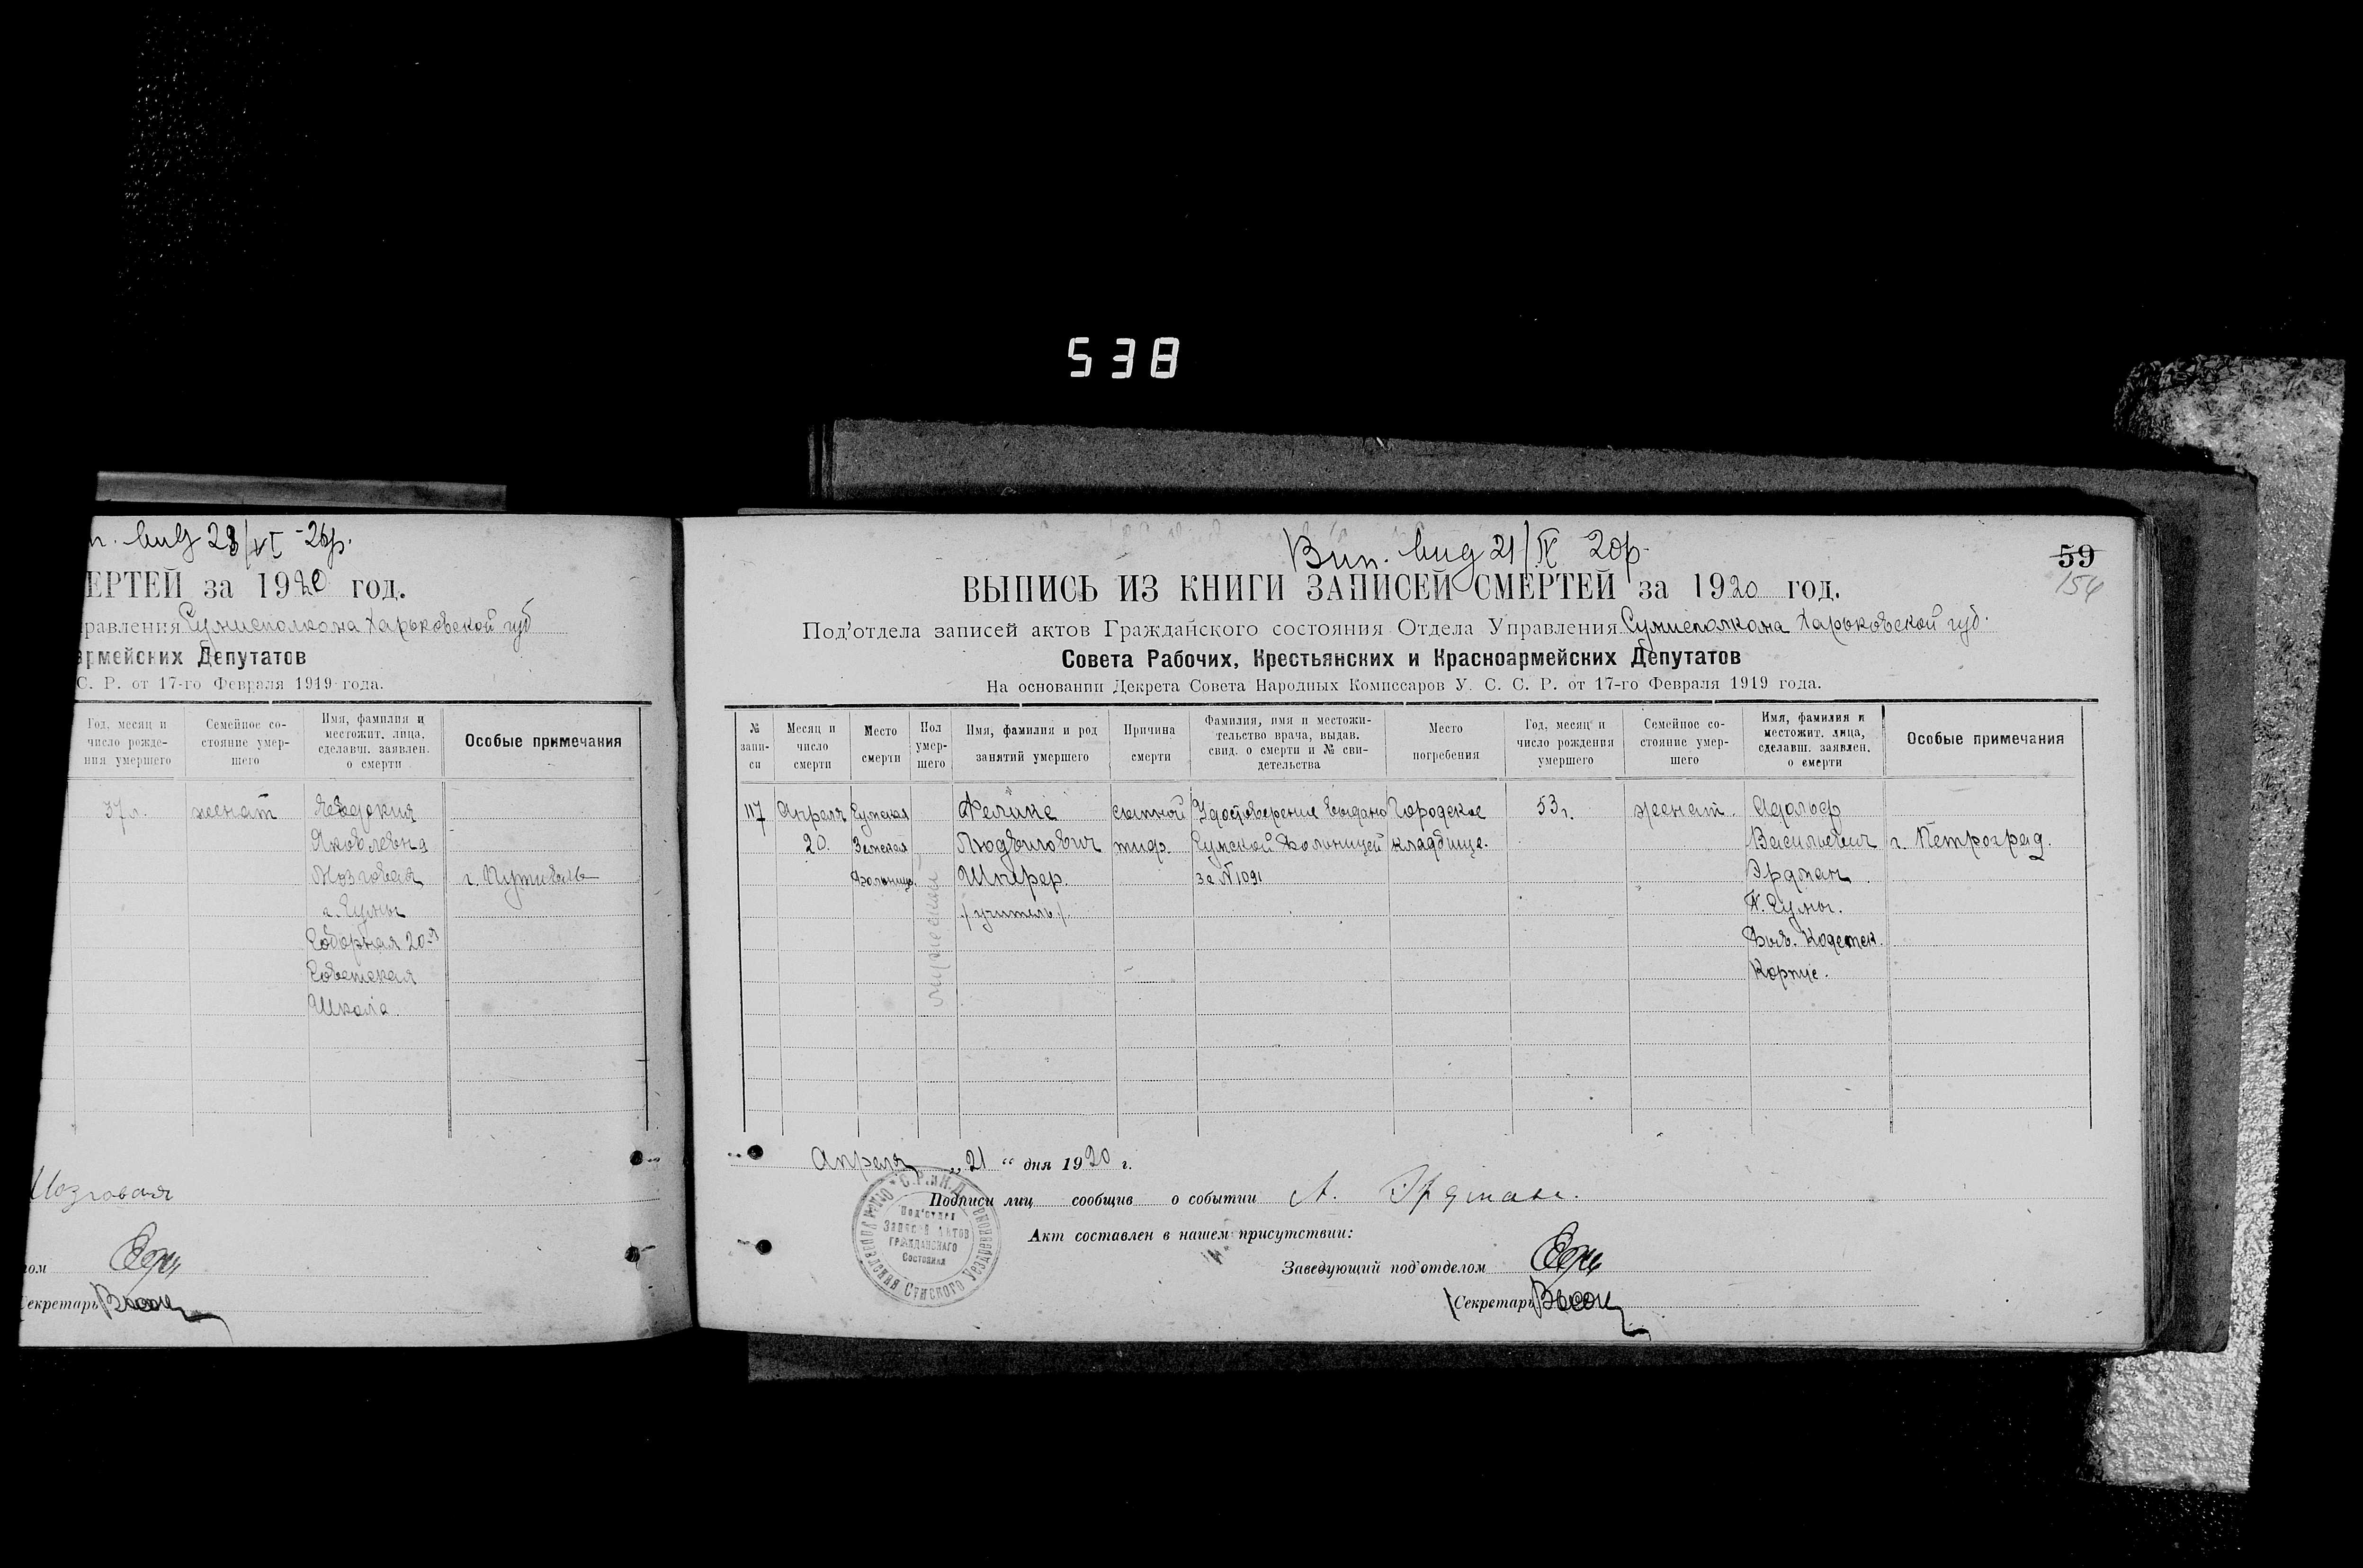 538
28/VI - 26р.
ЕРТЕЙ за 1920 год.
равления Сумисполкома Харьковской губ
армейских Депутатов
С. Р. от 17-го Февраля 1919 года.
Год, месяц и число рождения умершего
Семейное состояние умершего
Имя, фамилия и местожит. лица, сделавш. заявлен. о смерти
Особые примечания
37 л.
женат
Явдокия
Яковлевна
Мозговая
г. Сумы
Соборная 20-я
Советская
Школа.
г. Путивль
Мозговая
ом
Секретарь
Вип. 21/IV 20р.
59
154
ВЫПИСЬ ИЗ КНИГИ ЗАПИСЕЙ СМЕРТЕЙ за 1920 год.
Под'отдела записей актов Гражданского состояния Отдела Управления Сумисполкома Харьковской губ.
Совета Рабочих, Крестьянских и Красноармейских Депутатов
На основании Декрета Совета Народных Комиссаров У. С. С. Р. от 17-го Февраля 1919 года.
№ запи-си
Месяц и число смерти
Место смерти
Пол умер-шего
Имя, фамилия и род занятий умершего
Причина смерти
Фамилия, имя и местожи-тельство врача, выдав. свид. о смерти и № сви-детельства
Место погребения
Год, месяц и число рождения умершего
Семейное со-стояние умер-шего
Имя, фамилия и местожит. лица, сделавш. заявлен. о смерти
Особые примечания
117
Апреля
20.
Сумская
Земская
больница.
мужеский
Феликс
Людвигович
Шперер.
/учитель/.
сыпной
тиф.
Удостоверение выдано
Сумской больницей
за №1091
Городское
кладбище.
53 г.
женат.
Адольф
Васильевич
Эрдман
г. Сумы.
Быв. Кадетск.
Корпус.
г. Петроград.
Апреля „21“ дня 1920 г.
Подписи лиц сообщив о событии А. Эрдман.
Акт составлен в нашем присутствии:
Заведующий под'отделом
Секретарь
Под'отдел
Записей Актов
Гражданскаго
Состояния